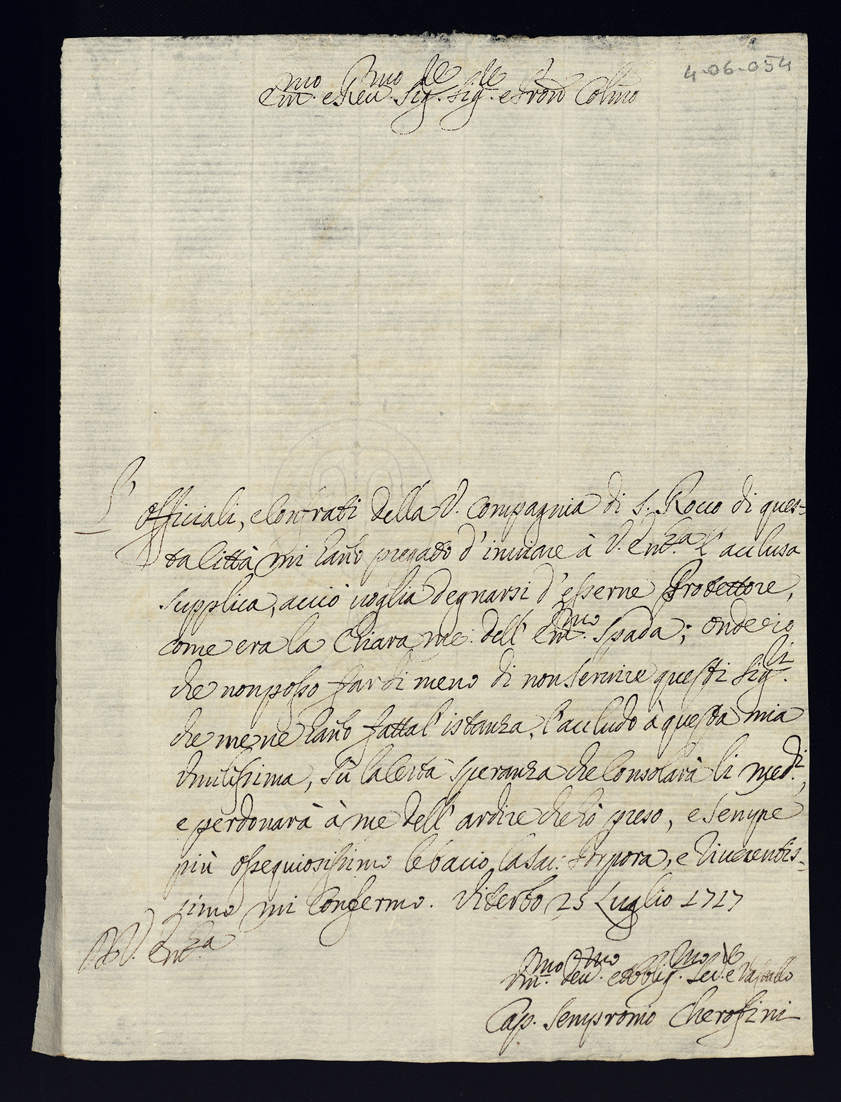 4-06-054
Em.mo e Rev.mo Sig.re Sig.re e Pron Colmo
L'officiali, e Confrati della V. Compagnia di S. Rocco di ques-
ta Città mi hano pregato d'inviare à V. Em.za l'acclusa
supplica, acciò voglia degnarsi d'esserne Protettore,
come era la Chiara me: dell' Em.mo Spada; onde io
che non posso far di meno di non servire questi Sig.ri
che me ne hano fatta l'istanza, l'accludo à questa mia
Umilissima, sù la certa speranza che consolarà li med.i,
e perdonarà à me dell' ardire che hò preso, e sempre
più ossequiosissimo le bacio la Sac: Porpora, e riverentis-
simo mi confermo. Viterbo 25 Luglio 1717
V. Em.za
Um.mo Dev.mo ed obblig.mo Ser.re e Vassallo
Cap. Sempronio Cherofini